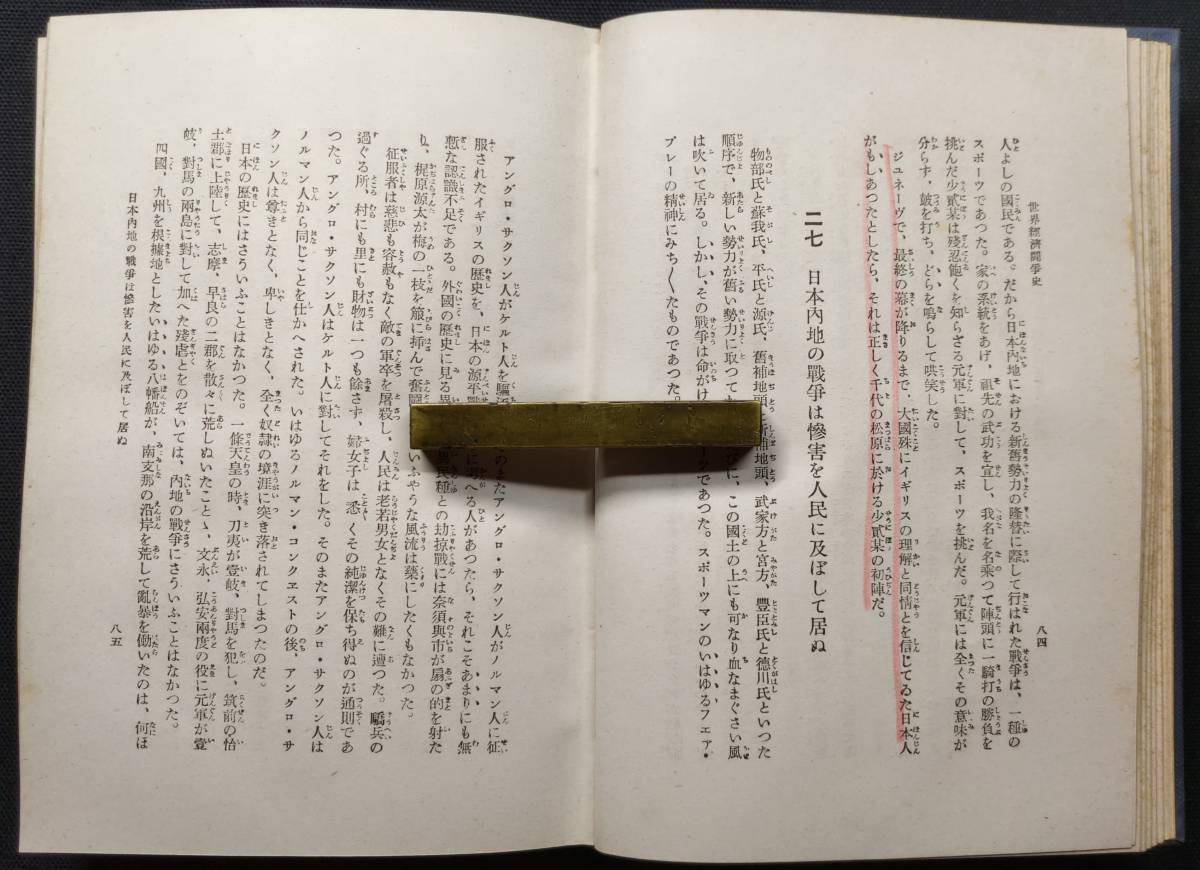 世界經濟鬪爭史
八四
人よしの國民である。だから日本內地における新舊勢力の隆替に際して行はれた戰爭は、一種の
スポーツであつた。家の系統をあげ、祖先の武功を宣し、我名を名乘つて陣頭に一騎打の勝負を
挑んだ少貳某は殘忍飽くを知らざる元軍に對して、スポーツを挑んだ。元軍には全くその意味が
分らず、皷を打ち、どらを鳴らして哄笑した。
ジュネーヴで、最終の幕が降りるまで、大國殊にイギリスの理解と同情とを信じてゐた日本人
がもしあつたとしたら、それは正しく千代の松原に於ける少貳某の初陣だ。
二七 日本內地の戰爭は慘害を人民に及ぼして居ぬ
物部氏と蘇我氏、平氏と源氏、舊補地頭と新補地頭、武家方と宮方、豐臣氏と德川氏といつた
順序で、新しい勢力が舊い勢力に取つて びに、この國土の上にも可なり血なまぐさい風
は吹いて居る。しかし、その戰爭は命がけ ーツであつた。スポーツマンのいはゆるフェア・
プレーの精神にみち〱たものであつた。
アングロ・サクソン人がケルト人を驅 のまたアングロ・サクソン人がノルマン人に征
服されたイギリスの歷史を、日本の源平 へる人があつたら、それこそあまりにも無
慙な認識不足である。外國の歷史に見る異 異民種との劫掠戰には奈須與市が扇の的を射た
り、梶原源太が梅の一枝を箙に挿んで奮鬪 いふやうな風流は藥にしたくもなかつた。
征服者は慈悲も容赦もなく敵の軍卒を屠殺し、人民は老若男女となくその難に遭つた。驕兵の
過ぐる所、村にも里にも財物は一つも餘さず、婦女子は悉くその純潔を保ち得ぬのが通則であ
つた。アングロ・サクソン人はケルト人に對してそれをした。そのまたアングロ・サクソン人は
ノルマン人から同じことを仕かへされた。いはゆるノルマン・コンクェストの後、アングロ・サ
クソン人は尊きとなく、卑しきとなく、全く奴隷の境涯に突き落されてしまつたのだ。
日本の歷史にはさういふことはなかつた。一條天皇の時、刀夷が壹岐、對馬を犯し、筑前の怡
土郡に上陸して、志摩、早良の二郡を散々に荒しぬいたことゝ、文永、弘安兩度の役に元軍が壹
岐、對馬の兩島に對して加へた殘虐とをのぞいては、內地の戰爭にさういふことはなかつた。
四國、九州を根據地としたいはゆる八幡船が、南支那の沿岸を荒して亂暴を働いたのは、何ほ
日本內地の戰爭は慘害を人民に及ぼして居ぬ
八五